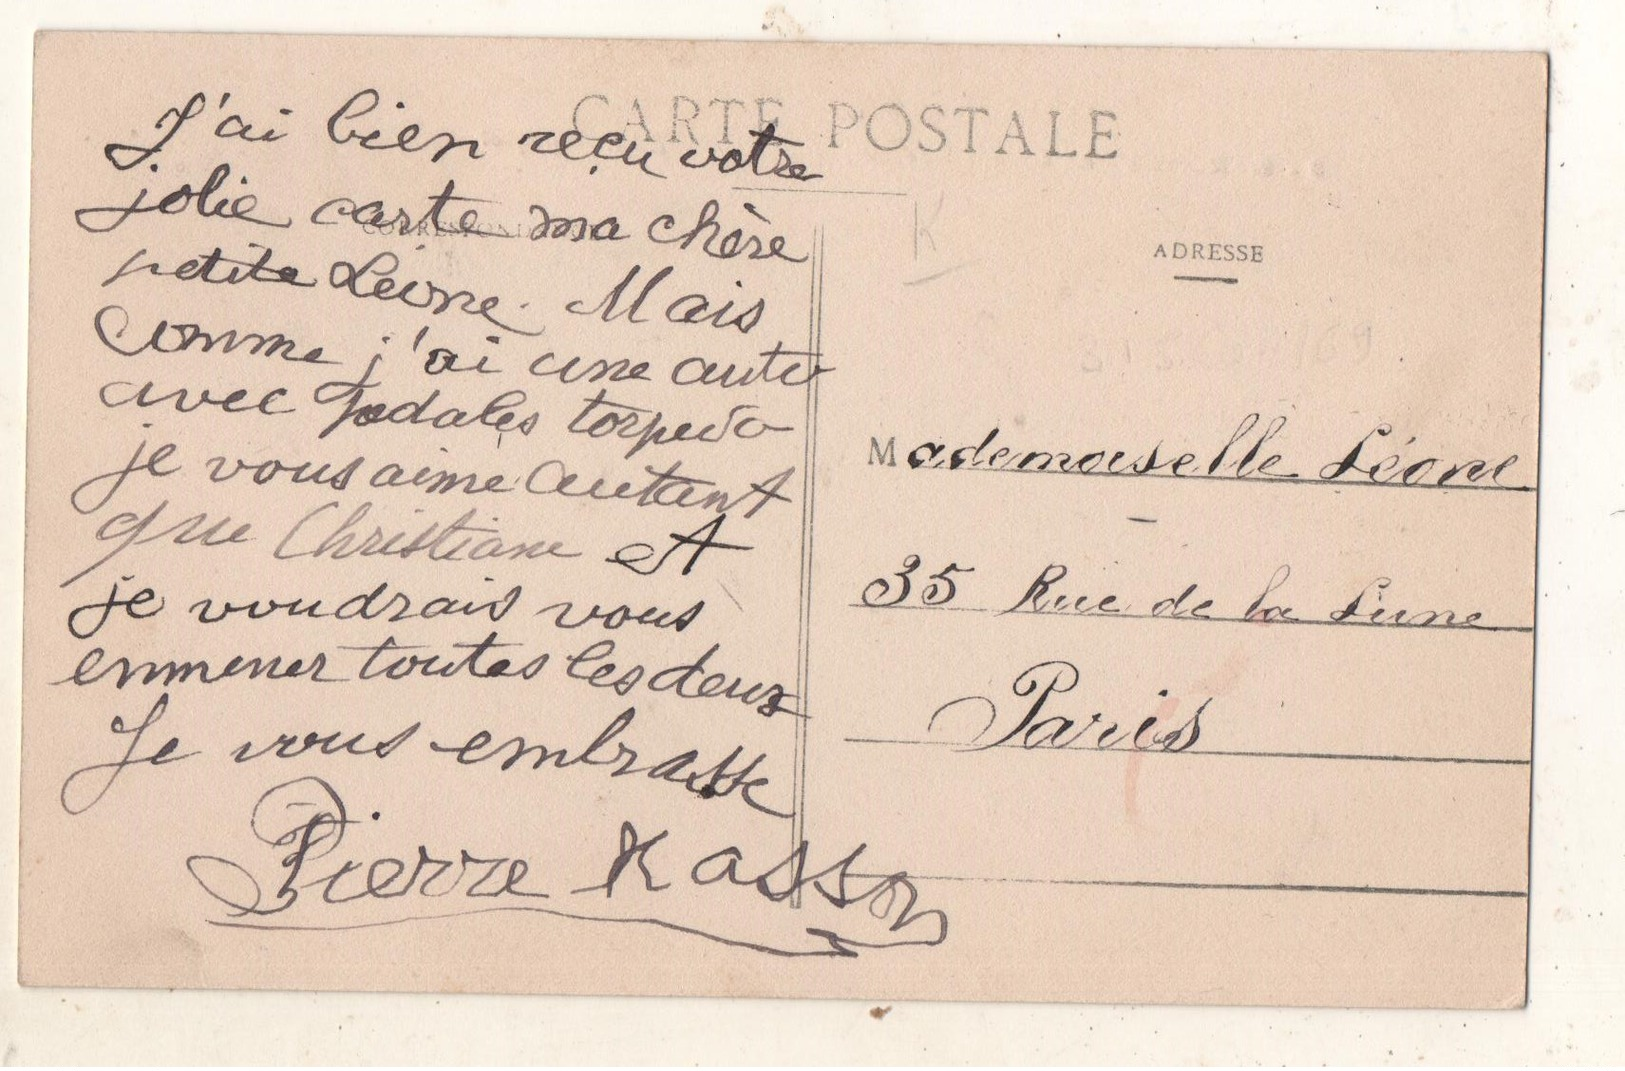 CARTE POSTALE
CORRESPONDANCE
J'ai bien reçu votre
jolie carte ma chère
petite Léone. Mais
comme j'ai une auto
avec pedales torpedo
je vous aime autant
que Christiane et
je voudrais vous
emmener toutes les deux
Je vous embrasse
Pierre Kasson
K
ADRESSE
Mademoiselle Léone
35 Rue de la Lune
Paris